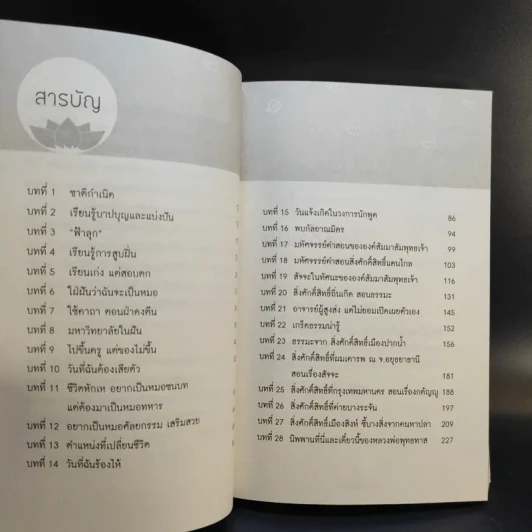 สารบัญ
บทที่ 1 ชาติกำเนิด
บทที่ 2 เรียนรู้บาปบุญและแบ่งปัน
บทที่ 3 "ฟ้าลุก"
บทที่ 4 เรียนรู้การสูบฝิ่น
บทที่ 5 เรียนเก่ง แต่สอบตก
บทที่ 6 ใฝ่ฝันว่าฉันจะเป็นหมอ
บทที่ 7 ใช้คาถา ตอนฝ่าดงตีน
บทที่ 8 มหาวิทยาลัยในฝัน
บทที่ 9 ไปขึ้นครู แต่ของไม่ขึ้น
บทที่ 10 วันที่ฉันต้องเสียตัว
บทที่ 11 ชีวิตหักเห อยากเป็นหมอชนบท
แต่ต้องมาเป็นหมอทหาร
บทที่ 12 อยากเป็นหมอศัลยกรรม เสริมสวย
บทที่ 13 ตำแหน่งที่เปลี่ยนชีวิต
บทที่ 14 วันที่ฉันร้องไห้
บทที่ 15 วันแจ้งเกิดในวงการนักพูด 86
บทที่ 16 พบกัลยาณมิตร 94
บทที่ 17 มหัศจรรย์คำสอนขององค์สัมมาสัมพุทธเจ้า 99
บทที่ 18 มหัศจรรย์คำสอนสิ่งศักดิ์สิทธิ์แดนไกล 103
บทที่ 19 สัจจะในทัศนะขององค์สัมมาสัมพุทธเจ้า 116
บทที่ 20 สิ่งศักดิ์สิทธิ์ถิ่นเกิด สอนธรรมะ 131
บทที่ 21 อาจารย์ผู้สูงส่ง แต่ไม่ยอมเปิดเผยตัวเอง 145
บทที่ 22 เกร็ดธรรมน่ารู้ 152
บทที่ 23 ธรรมะจาก สิ่งศักดิ์สิทธิ์เมืองปากน้ำ 156
บทที่ 24 สิ่งศักดิ์สิทธิ์ที่ผมเคารพ ณ จ.อยุธยาธานี
สอนเรื่องสัจจะ 181
บทที่ 25 สิ่งศักดิ์สิทธิ์ที่กรุงเทพมหานคร สอนเรื่องกตัญญู 188
บทที่ 26 สิ่งศักดิ์สิทธิ์ที่ค่ายบางระจัน 197
บทที่ 27 สิ่งศักดิ์สิทธิ์เมืองสิงห์ ชี้บางสิ่งจากคนหาปลา 209
บทที่ 28 นิพพานที่นี่และเดี๋ยวนี้ของหลวงพ่อพุทธทาส 227